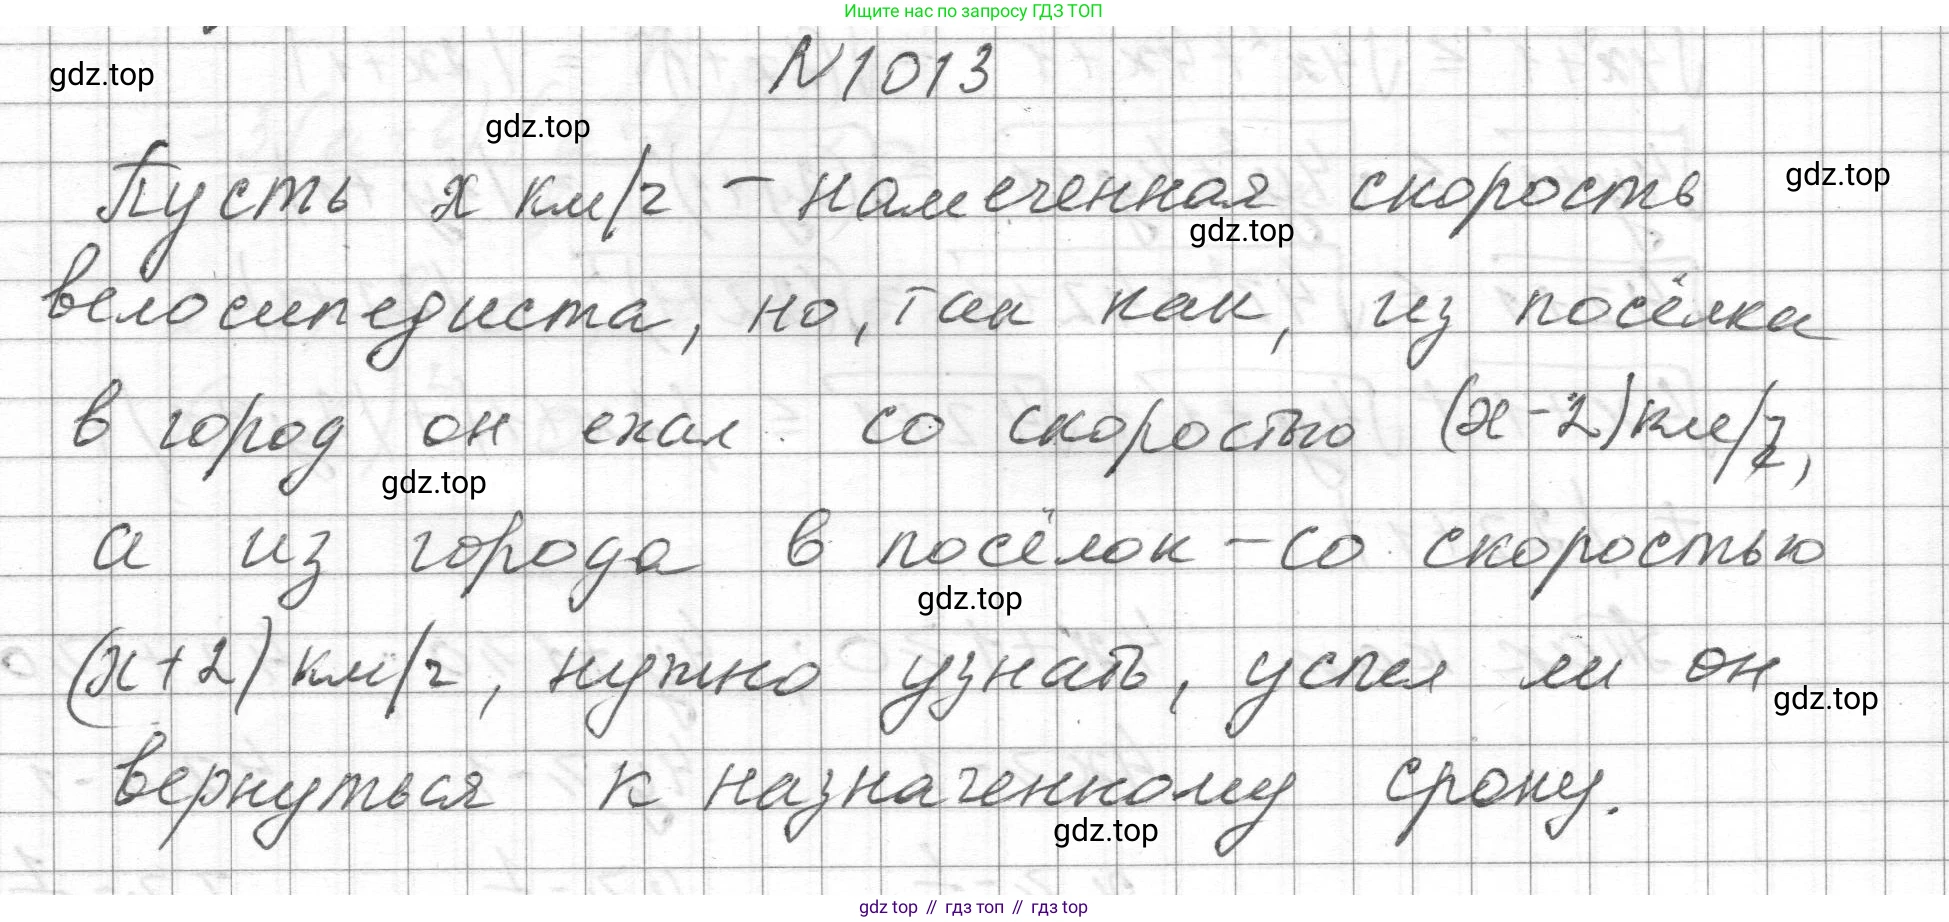 Ищите нас по запросу ГДЗ ТОП
N1013
gdz.top
gdz.top
Пусть х км/ч – намеченная скорость
gdz.top
gdz.top
велосипедиста, но, так как, из посёлка
в город он ехал со скоростью (х-2) км/ч,
gdz.top
а из города в посёлок – со скоростью
gdz.top
(х+2) км/ч, нужно узнать, успел ли он
gdz.top
вернуться к назначенному сроку.
gdz.top
gdz top // гдз топ // гдз top